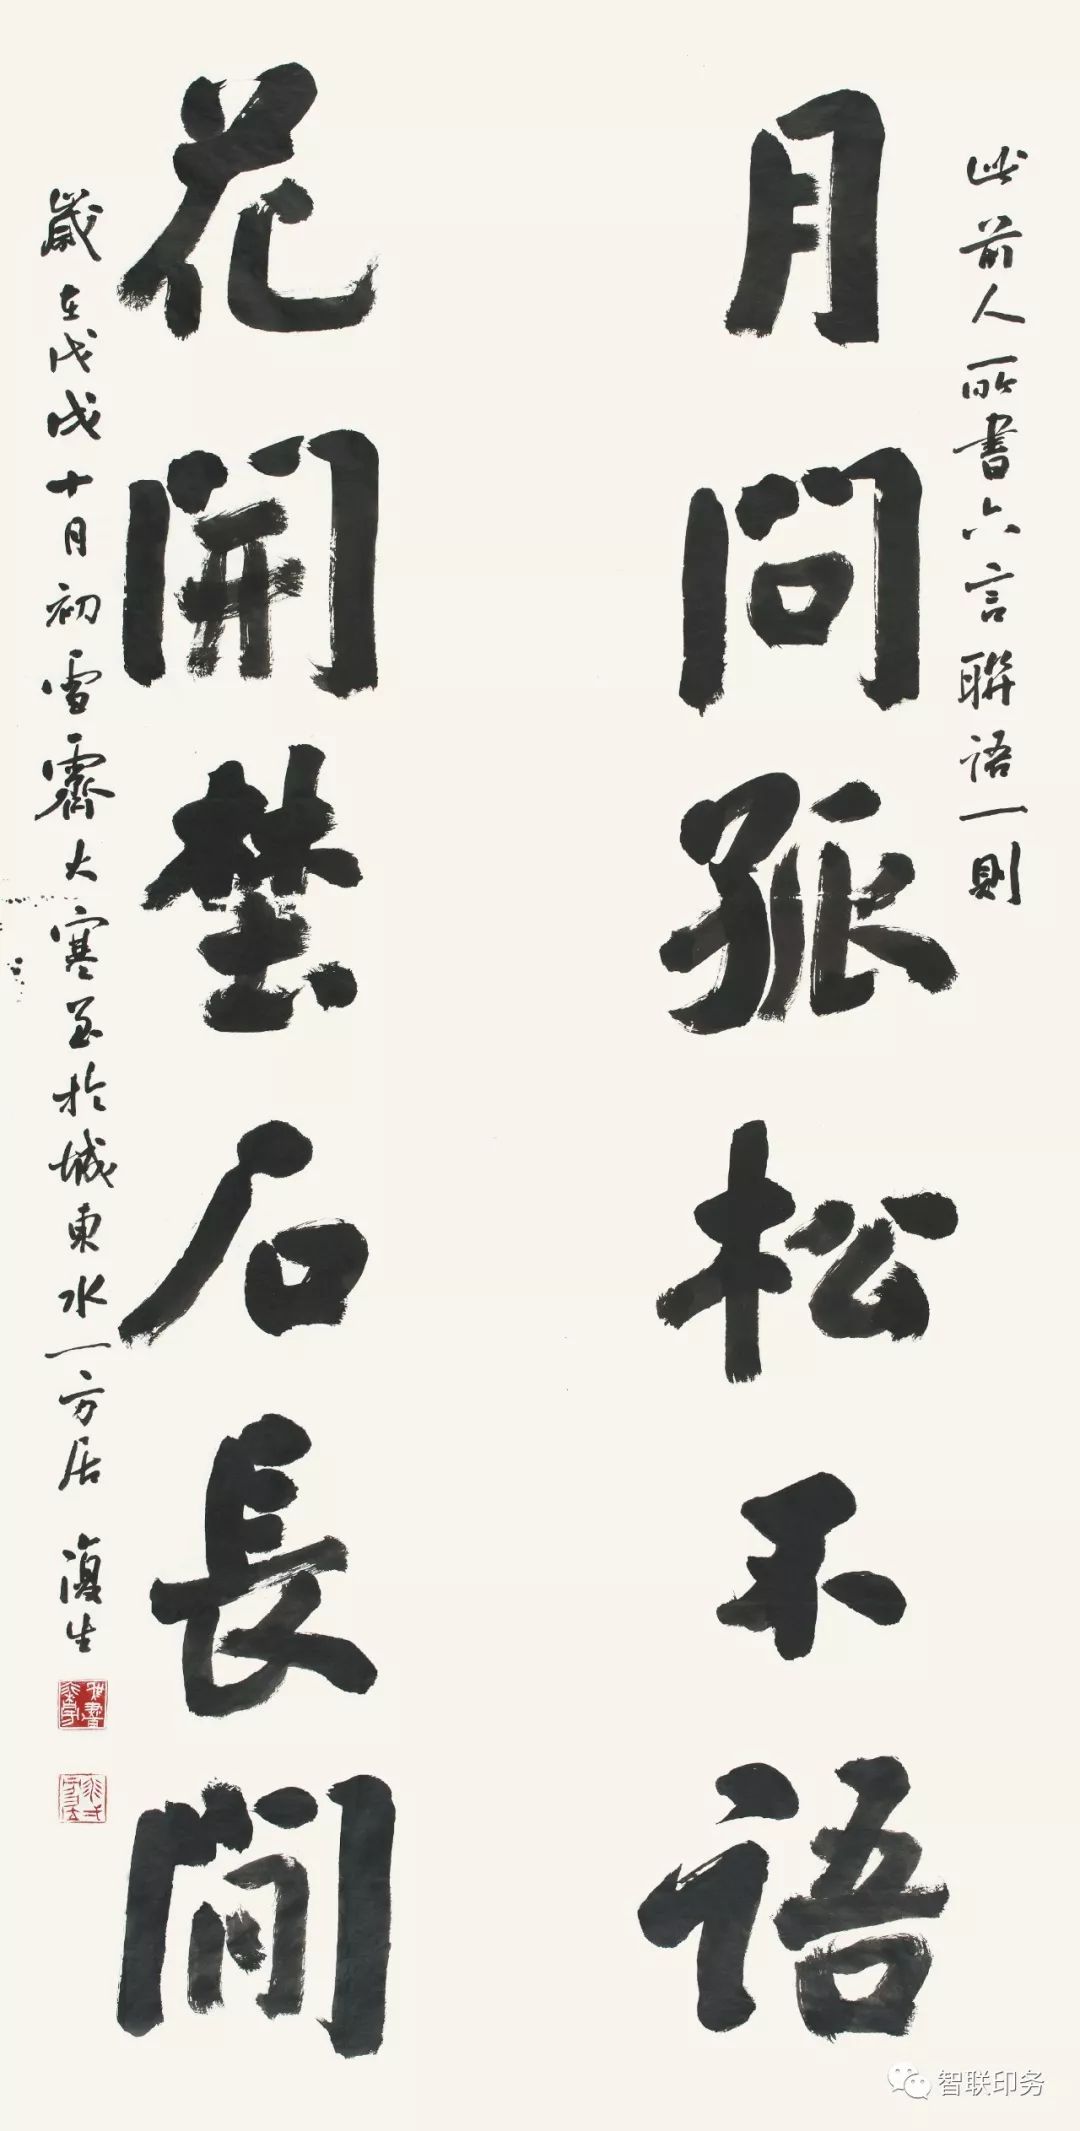 此前人所書六言聯語一則
月問孤松不語
花開埜石長閒
歲在戊戌十月初雪霽大寒至於城東水一方居 澓生
智联印务